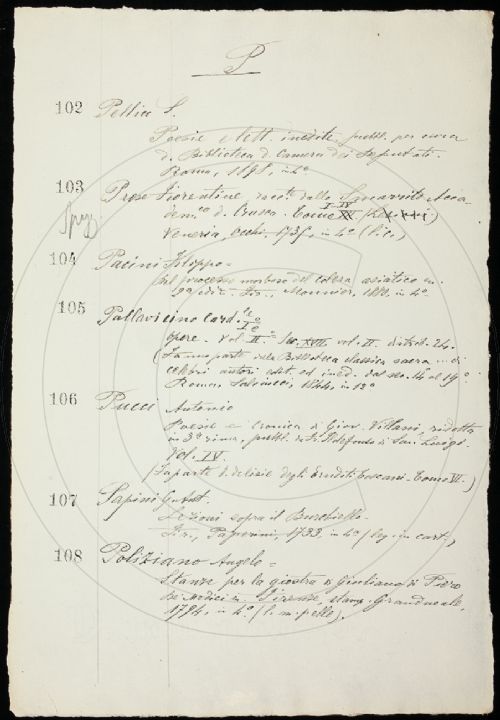 P
102 Pellico S.
Poesie e lett. inedite pubbl. per cura
d. Biblioteca d. Camera dei Deputati.
Roma, in 4º
103 Prose Fiorentine racc. dallo Smarrito Acca
dem.co d. Crusca. Tomo I-IV
Venezia, Occhi, 1735, in 4º
104 Pacini Filippo =
Del processo morboso del colera asiatico
in 4º
105 Pallavicino Card.le
Opere. Vol. II. = Sec. XVII vol. II. distrib. 24.
(Fanno parte della Biblioteca classica sacra ... di
celebri autori edit. ed ined. dal sec. 14 al 19º
Roma, Salviucci, 1844, in 12º
106 Pucci Antonio
Poesie e Cronica di Giov. Villani, ridotta
in 3ª rima, pubbl. da Fr. Ildefonso di San Luigi.
Vol. IV.
(Fa parte d. delizie degli Eruditi toscani. Tomo VI.)
107 Papini
Lezioni sopra il Burchiello =
Fir., Paperini, 1733, in 4º (leg. in cart.)
108 Poliziano Angelo =
Stanze per la giostra di Giuliano di Piero
de Medici = Firenze, stamp. Granducale,
1794, in 4º (l. m. pelle).